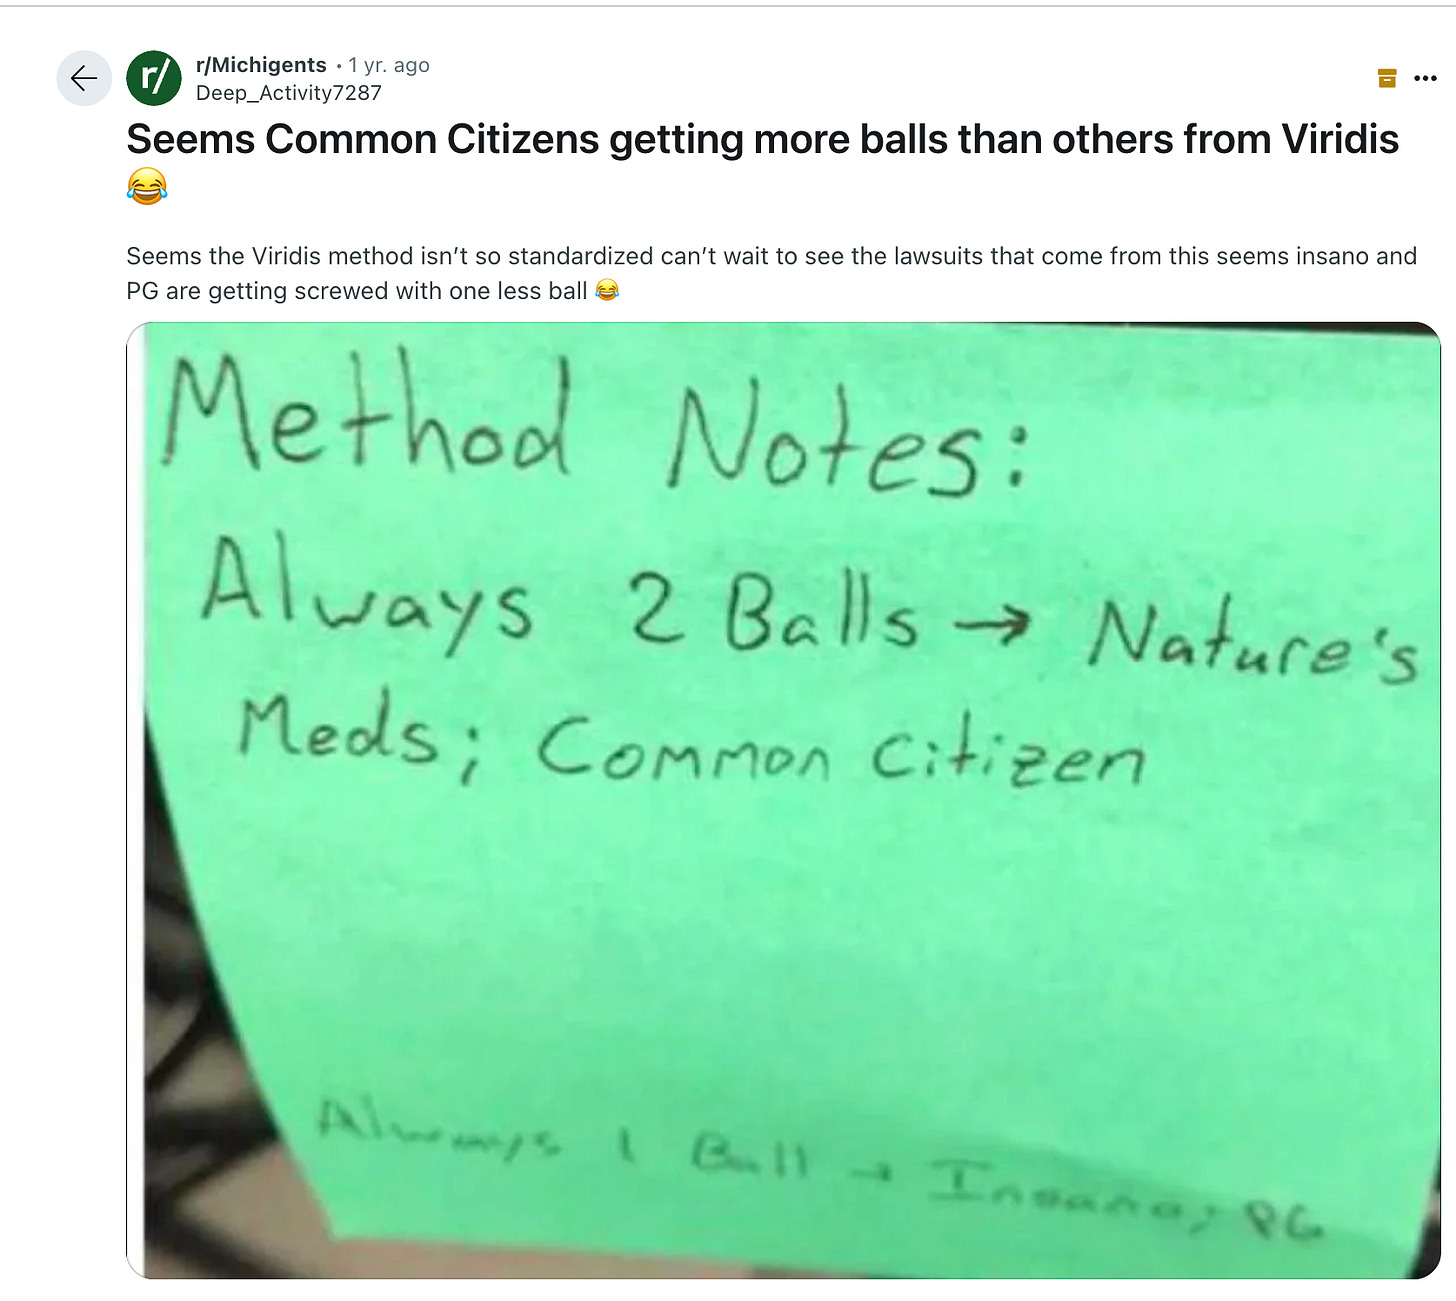 r/Michigents • 1 yr. ago
Deep_Activity7287
Seems Common Citizens getting more balls than others from Viridis
😂
Seems the Viridis method isn’t so standardized can’t wait to see the lawsuits that come from this seems insano and
PG are getting screwed with one less ball 😂
Method Notes:
Always 2 Balls → Nature's
Meds; Common Citizen
Always 1 Ball → Insano; PG